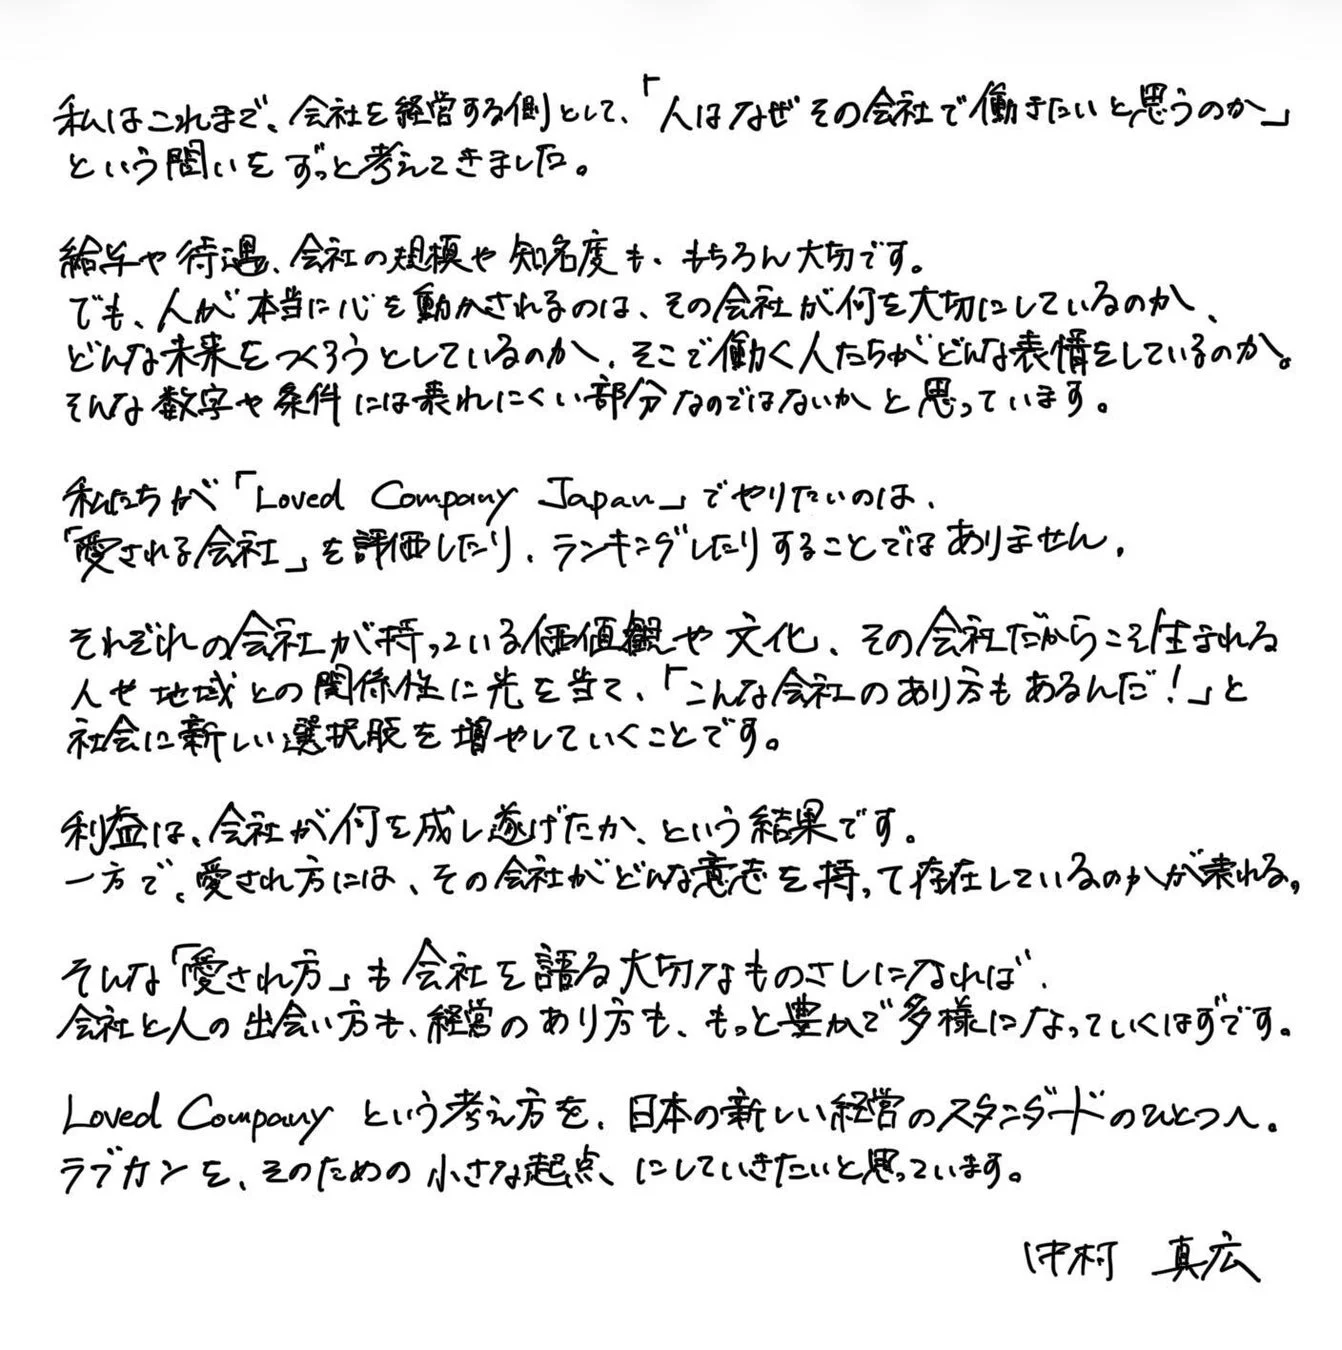 私はこれまで、会社を経営する側として、「人はなぜその会社で働きたいと思うのか」
という問いをずっと考えてきました。
給与や待遇、会社の規模や知名度も、もちろん大切です。
でも、人が本当に心を動かされるのは、その会社が何を大切にしているのか、
どんな未来をつくろうとしているのか、そこで働く人たちがどんな表情をしているのか。
そんな数字や条件には表れにくい部分なのではないかと思っています。
私たちが「Loved Company Japan」でやりたいのは、
「愛される会社」を評価したり、ランキングしたりすることではありません。
それぞれの会社が持っている価値観や文化、その会社だからこそ生まれる
人や地域との関係性に光を当て、「こんな会社のあり方もあるんだ！」と
社会に新しい選択肢を増やしていくことです。
利益は、会社が何を成し遂げたか、という結果です。
一方で、愛され方には、その会社がどんな意志を持って存在しているのかが表れる。
そんな「愛され方」も会社を語る大切なものさしになれば、
会社と人の出会い方も、経営のあり方も、もっと豊かで多様になっていくはずです。
Loved Company という考え方を、日本の新しい経営のスタンダードのひとつへ。
ラブカンを、そのための小さな起点、にしていきたいと思っています。
中村 真広